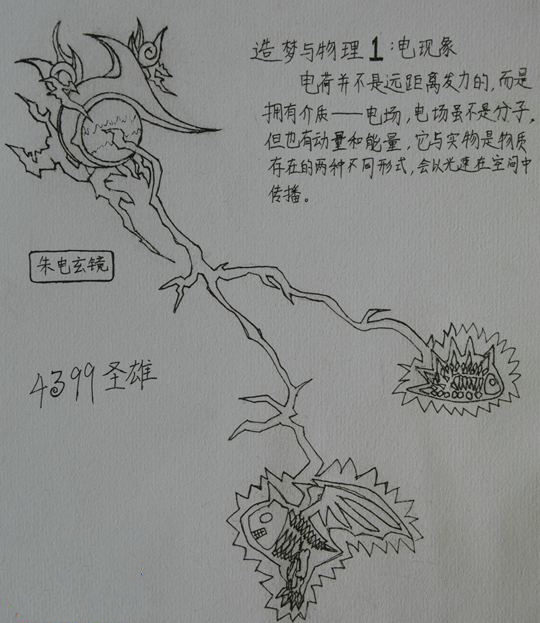 造梦与物理1:电现象
电荷并不是远距离发力的,而是
拥有介质——电场,电场虽不是分子,
但也有动量和能量,它与实物是物质
存在的两种不同形式,会以光速在空间中
传播。
朱电玄镜
4399圣雄